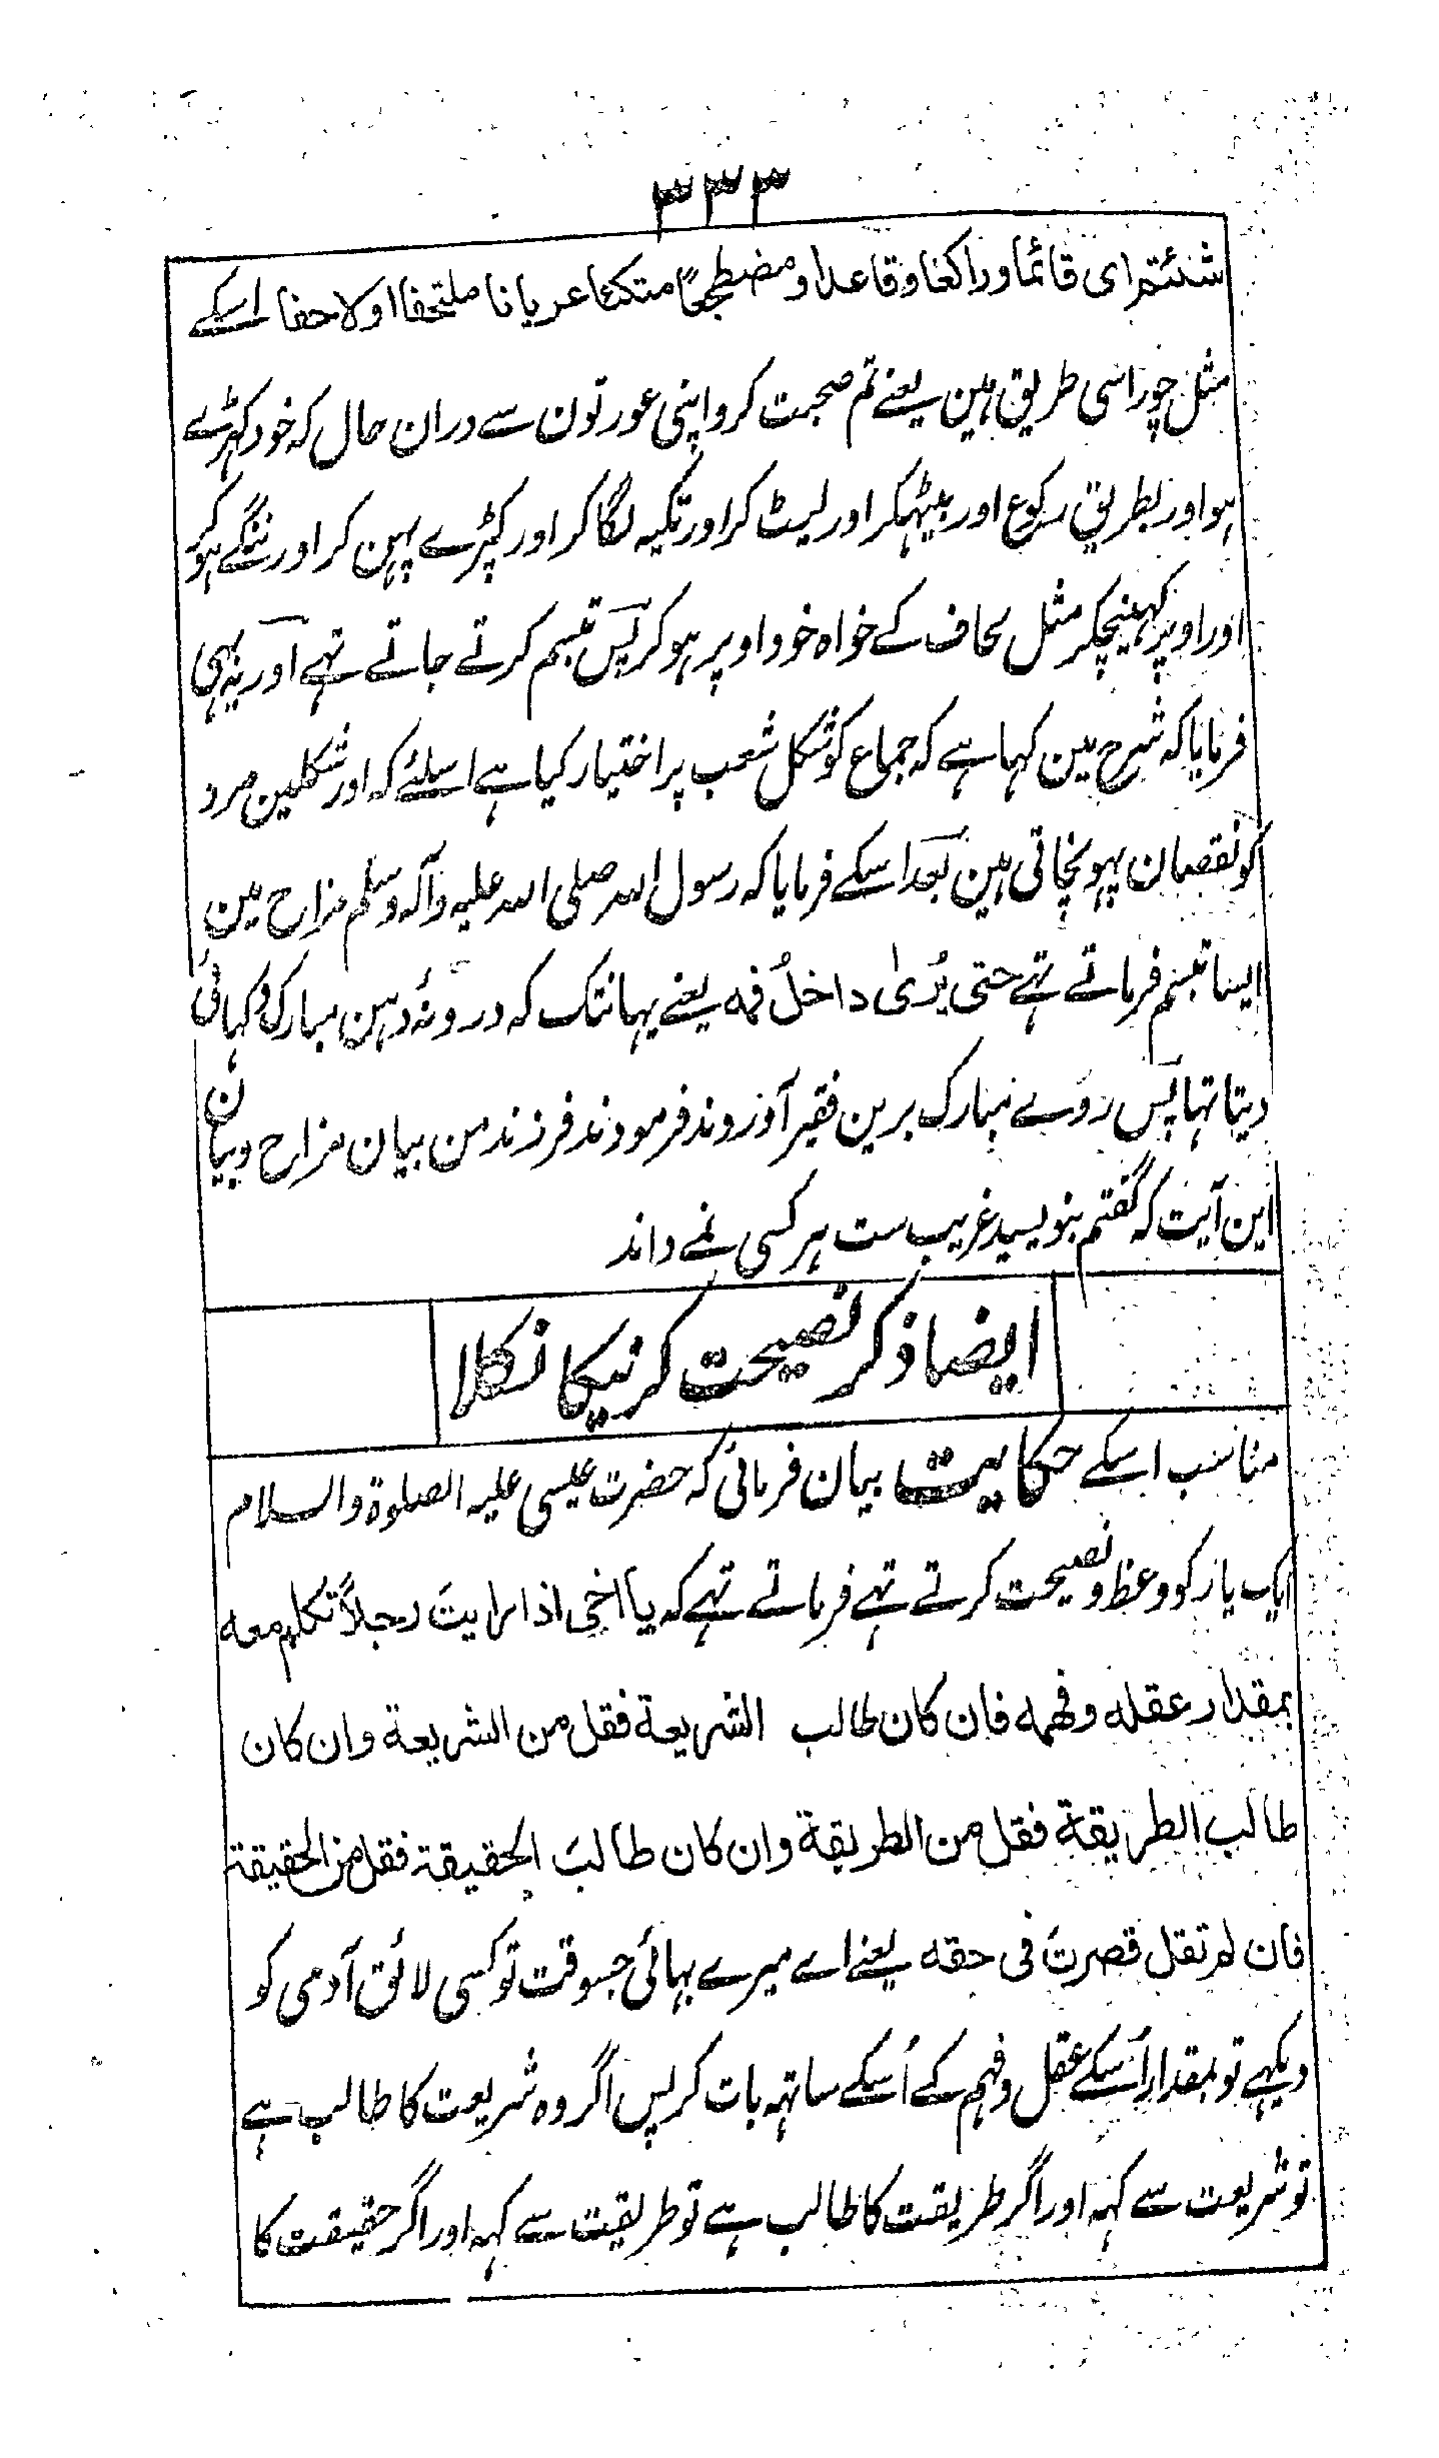 ٣٣٣
شئتم ای قائما وراکعا وقاعدا ومضطجعًا متکئا عریانا ملتحفا اولاحفا اسکے
مثل چوراسی طریق ہین یعنے تم صحبت کرو اپنی عورتون سے دران حال کہ خود کہڑے
ہو اور بطریق رکوع اور بیٹہکر اور لیٹ کر اور تکیہ لگا کر اور کپڑے پہن کر اور ننگے ہوکر
اور اوپر کہینچکر مثل لحاف کے خواہ خود اوپر ہو کر پس تبسم کرتے جاتے تہے اور یہ بہی
فرمایا کہ شرح مین کہا ہے کہ جماع کو شکل شعب پر اختیار کیا ہے اسلئے کہ اور شکلین مرد
کو نقصان پہونچاتی ہین بعد اسکے فرمایا کہ رسول اللہ صلی اللہ علیہ وآلہ وسلم مزاح مین
ایسا تبسم فرماتے تہے حتی یُریٰ داخلُ فمہ یعنے یہانتک کہ درونۂ دہن مبارک دکہائی
دیتا تہا پس روے مبارک برین فقیر آوروند فرمودند فرزند من بیان مزاح وبیان
این آیت کہ گفتم بنویسید غریب ست ہر کسی نمے داند
ایضا ذکر نصیحت کرنیکا نکلا
مناسب اسکے حکایت بیان فرمائی کہ حضرت عیسی علیہ الصلوۃ والسلام
ایک یار کو وعظ و نصیحت کرتے تہے فرماتے تہے کہ یا اخی اذا رایتَ رجلاً تکلم معہ
بمقدار عقلہ وفہمہ فان کان طالب الشریعة فقل من الشریعة وان کان
طالب الطریقة فقل من الطریقة وان کان طالبَ الحقیقة فقل من الحقیقة
فان لم تقل قصرتَ فی حقہ یعنے اے میرے بہائی جسوقت تو کسی لائق آدمی کو
دیکہے تو بمقدار اُسکے عقل و فہم کے اُسکے ساتہہ بات کر پس اگر وہ شریعت کا طالب ہے
تو شریعت سے کہہ اور اگر طریقت کا طالب ہے تو طریقت سے کہہ اور اگر حقیقت کا